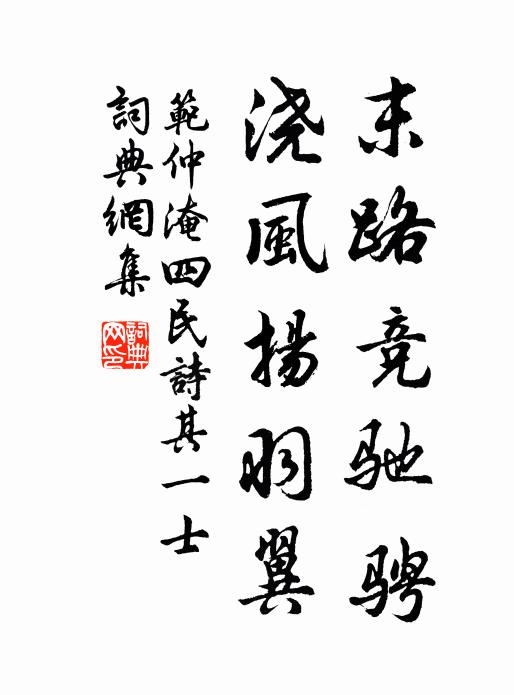 末路竞驰骋
浇風揚羽翼
範仲淹四民詩其一士
詞典網集
詞典
网印